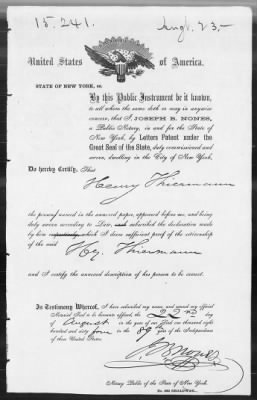 15.241. Augt. 23,-
United States of America.
STATE OF NEW YORK, ss.
By this Public Instrument be it known,
to all whom the same doth or may in anywise
concern, that I, JOSEPH B. NONES,
a Public Notary, in and for the State of
New York, by Letters Patent under the
Great Seal of the State, duly commissioned and
sworn, dwelling in the City of New York,
Do hereby Certify, That
Henry Thiermann
the person named in the annexed paper, appeared before me, and being
duly sworn according to Law, and subscribed the declaration made
by him respectively, which I deem sufficient proof of the citizenship
of the said Hy. Thiermann
and I certify the annexed description of his person to be correct.
In Testimony Whereof, I have subscribed my name and caused my official
Notarial Seal to be hereunto affixed, the 22nd day
of August in the year of our Lord one thousand eight
hundred and sixty four in the 89th year of the Independence
of these United States.
J B Nones
Notary Public of the State of New York.